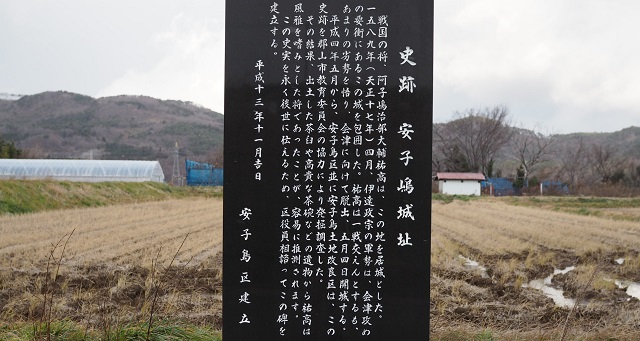 史跡 安子嶋城址
戦国の将、阿子嶋治部大輔祐高は、この地を居城とした。
一五八九年(天正十七年)四月、伊達政宗の軍勢は、会津攻め
の要衝にあるこの城を包囲した。祐高は一戦交えんとするも、
あまりの劣勢を悟り、会津に向けて脱出、五月四日開城する。
平成四年五月から、安子島区並に安子島土地改良区は、この
史跡を郡山市教育委員会の協力により発掘調査した。
その結果、出土した茶臼や高貴な茶碗などの遺物から祐高は
風雅を嗜みとした将であったことが、容易に推測されます。
この史実を永く後世に伝えるため、区役員相諮ってこの碑を
建立する。
平成十三年十一月吉日
安子島区建立